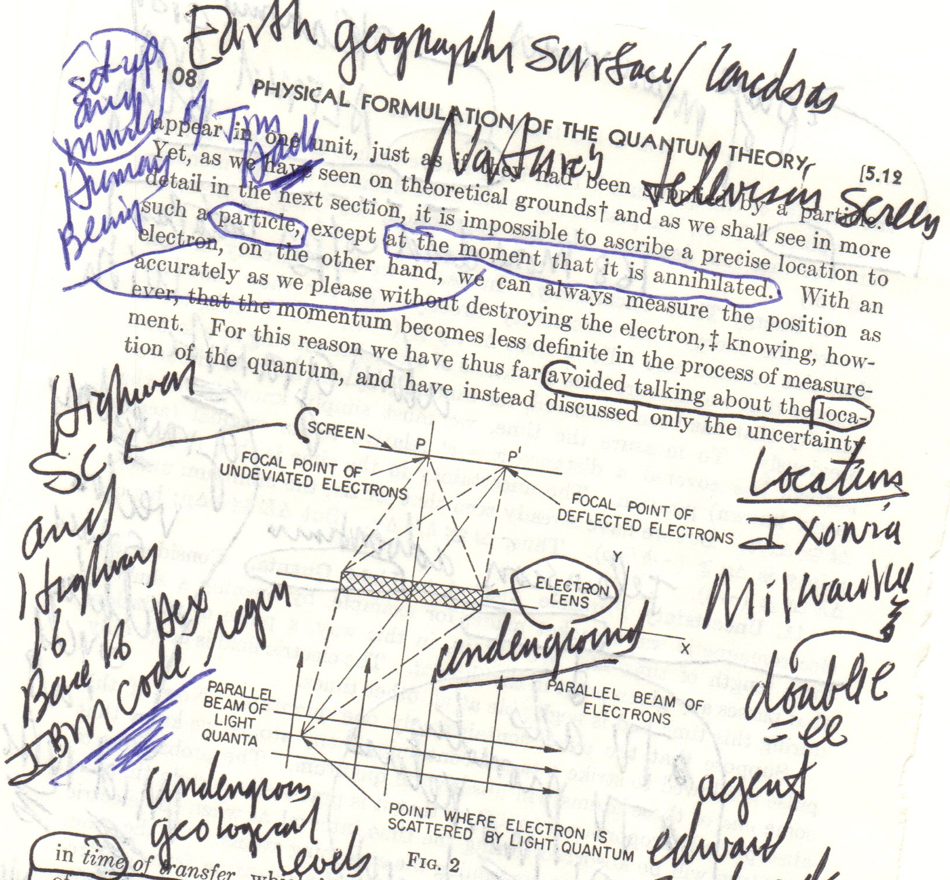 Earth geography surface/landsas
set-up
and
mind
Human
Being
of Tim
108
PHYSICAL FORMULATION OF THE QUANTUM THEORY
[5.12
Nature's television screen
appear in one unit, just as if had been by a particle.
Yet, as we have seen on theoretical grounds† and as we shall see in more
detail in the next section, it is impossible to ascribe a precise location to
such a particle, except at the moment that it is annihilated. With an
electron, on the other hand, we can always measure the position as
accurately as we please without destroying the electron,‡ knowing, how-
ever, that the momentum becomes less definite in the process of measure-
ment. For this reason we have thus far avoided talking about the loca-
tion of the quantum, and have instead discussed only the uncertainty
Highway
SC
and
Highway
16
Base 16 Hex
IBM code region
SCREEN
P
P'
FOCAL POINT OF
UNDEVIATED ELECTRONS
FOCAL POINT OF
DEFLECTED ELECTRONS
Y
ELECTRON
LENS
X
underground
PARALLEL
BEAM OF
LIGHT
QUANTA
PARALLEL BEAM OF
ELECTRONS
POINT WHERE ELECTRON IS
SCATTERED BY LIGHT QUANTUM
Location
Ixonia
Milwaukee
double
= ee
agent
edward
geological
levels
FIG. 2
in time of transfer